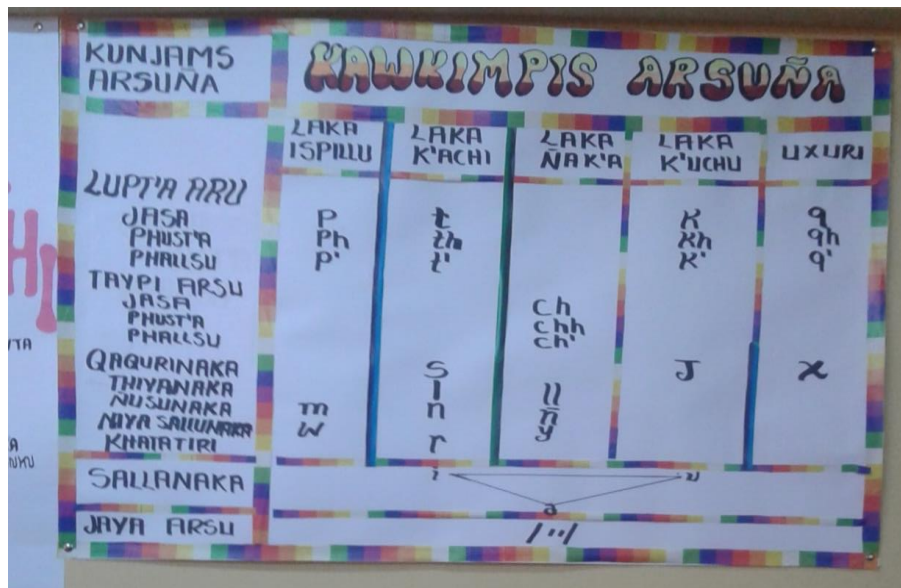 KUNJAMS ARSUÑA
KAWKIMPIS ARSUÑA
LAKA ISPILLU
LAKA K'ACHI
LAKA ÑAK'A
LAKA K'UCHU
UXURI
LUPT'A ARU
JASA p t k q
PHUST'A ph th kh qh
PHALLSU p' t' k' q'
TAYPI ARSU
JASA ch
PHUST'A chh
PHALLSU ch'
QAQURINAKA s J x
THIYANAKA l ll
ÑUSUNAKA m n ñ
NIYA SALLUNAKA w y
KHATATIRI r
SALLANAKA i u a
JAYA ARSU /¨/